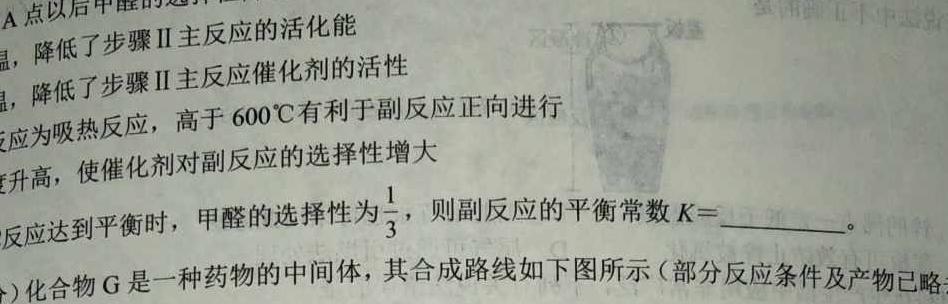 A点以后甲醛的选择
温，降低了步骤Ⅱ主反应的活化能
温，降低了步骤Ⅱ主反应催化剂的活性
反应为吸热反应，高于600℃有利于副反应正向进行
度升高，使催化剂对副反应的选择性增大
反应达到平衡时，甲醛的选择性为1/3，则副反应的平衡常数K=________。
分)化合物G是一种药物的中间体，其合成路线如下图所示(部分反应条件及产物已略